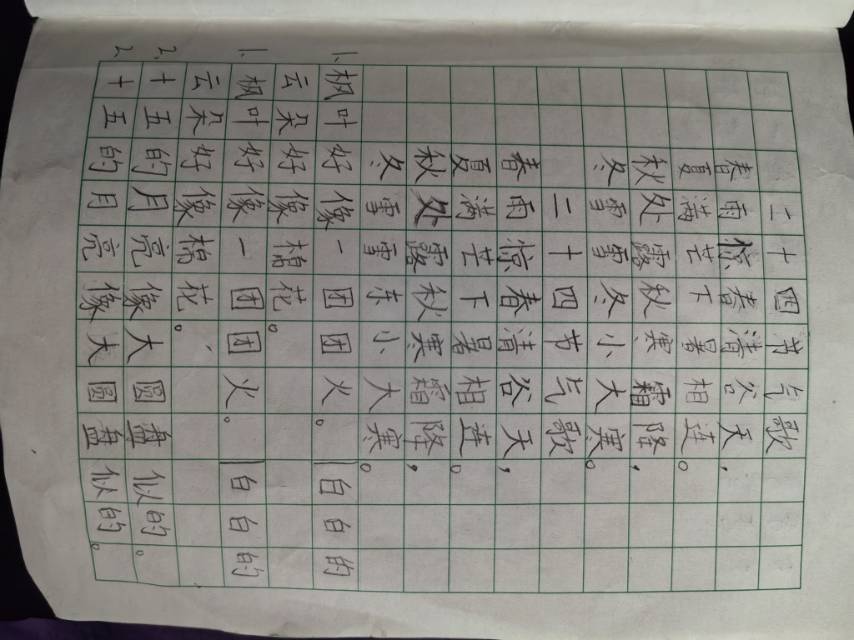 二十四节气歌
春雨惊春清谷天，
夏满芒下暑相连。
秋处露秋寒霜降，
冬雪雪冬小大寒。
二十四节气歌
春雨惊春清谷天，
夏满芒下暑相连。
秋处露秋寒霜降，
冬雪雪东小大寒。
1.枫叶好像一团团火。|白白的
云朵好像棉花。
1.枫叶好像一团团火。|白白的
云朵好像棉花。
2.十五的月亮像大圆盘似的。
2.十五的月亮像大圆盘似的。